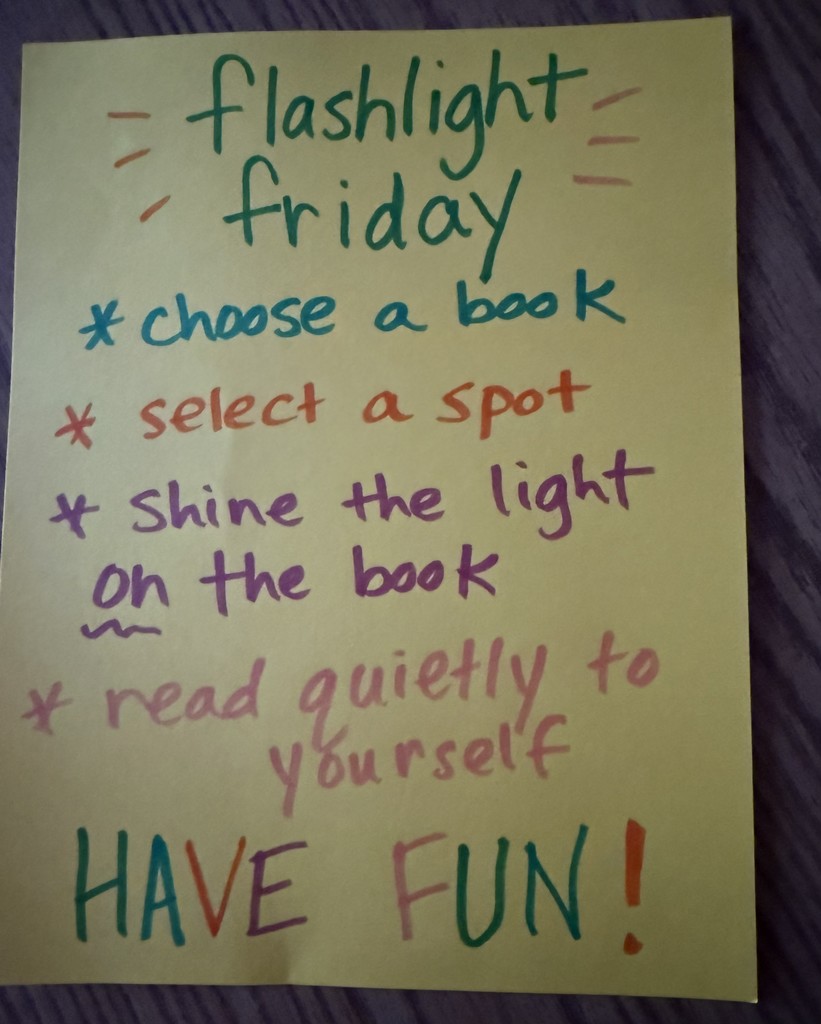 flashlight
friday
* choose a book
* select a spot
* shine the light
on the book
* read quietly to
yourself
HAVE FUN!